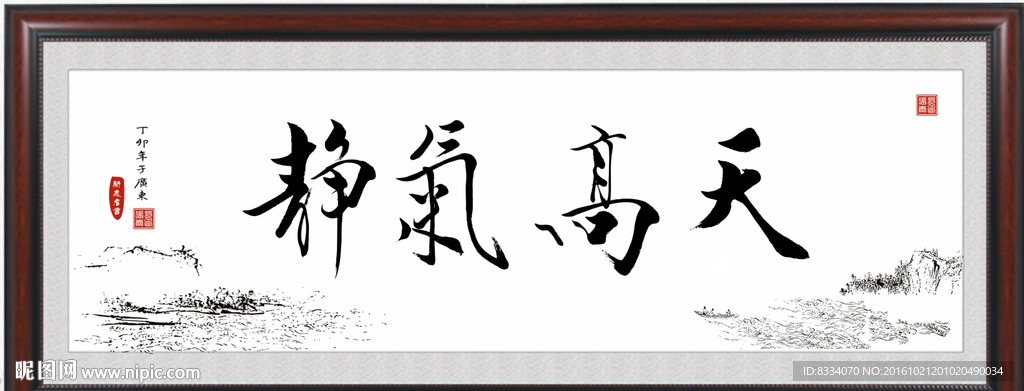 天高氣静
丁卯年于廣東
昵图网 www.nipic.com
ID:8334070 NO:20161021201020490034